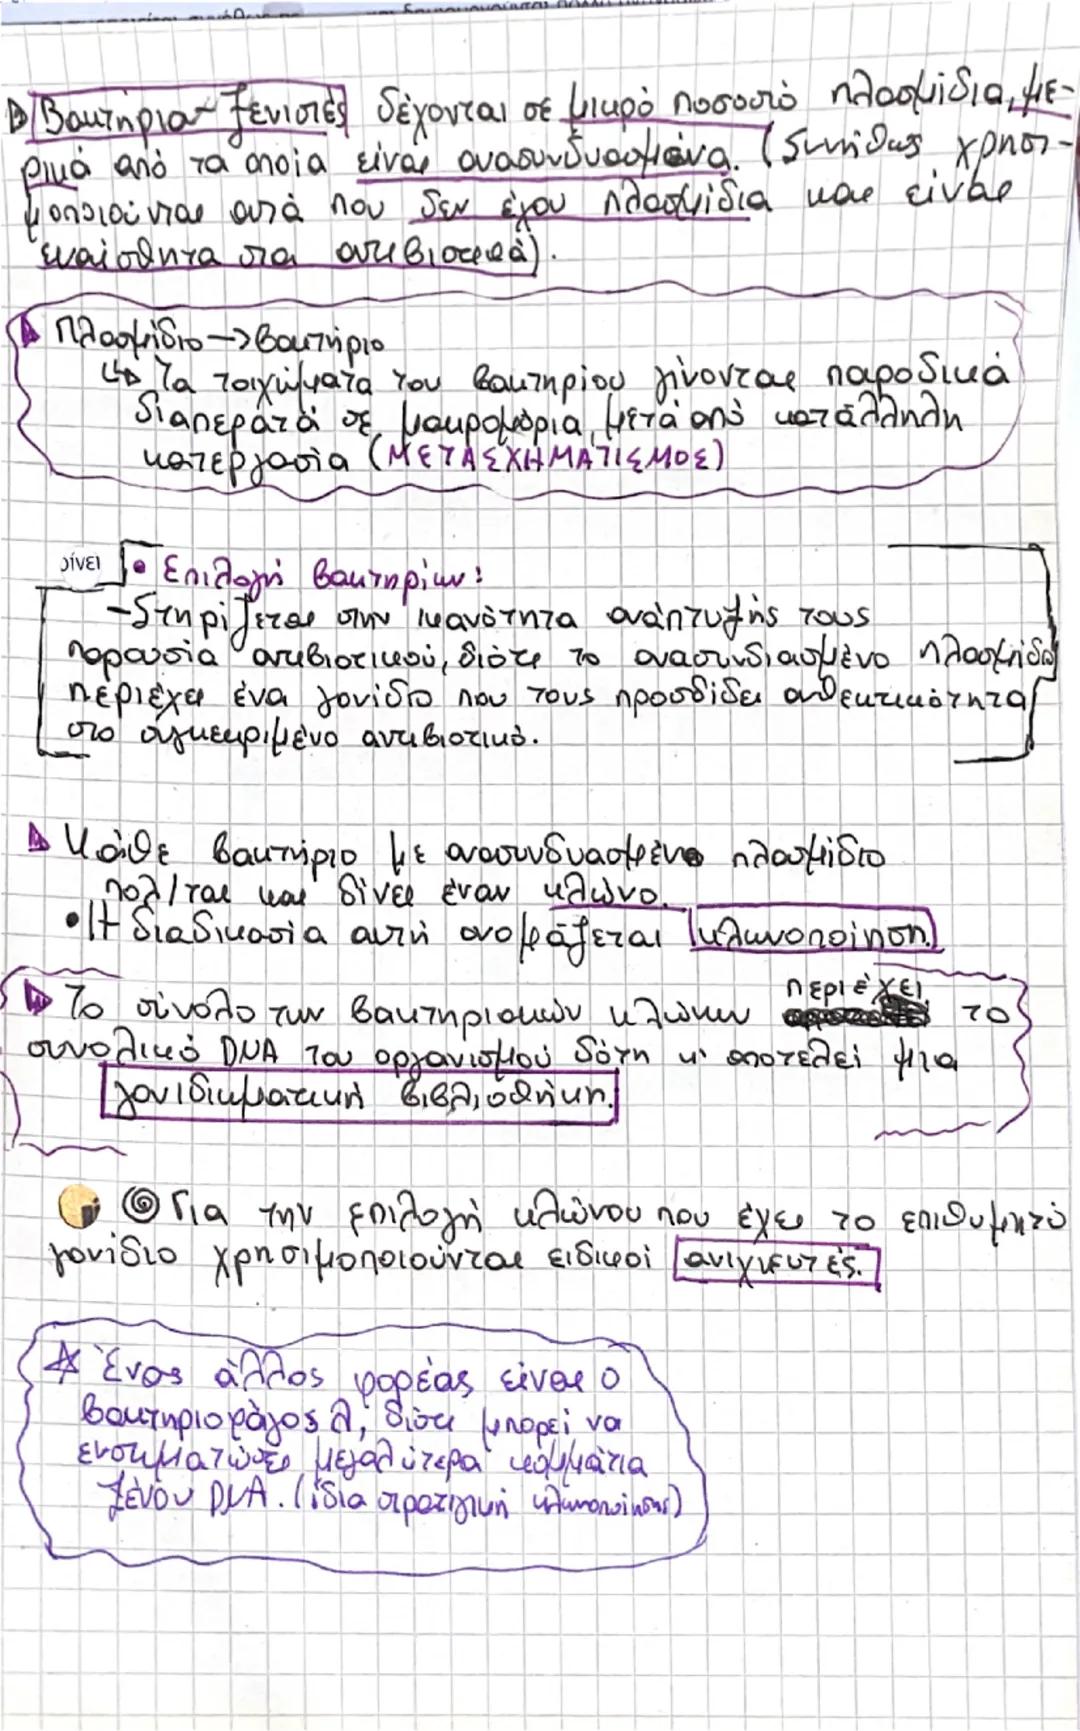 Βακτήρια - ξενιστές δέχονται σε μικρό ποσοστό πλασμίδια, με-
ρικά από τα οποία είναι ανασυνδυασμένα. (Συνήθως χρησι-
μοποιούνται αυτά που δεν έχου πλασμίδια και είναι
ευαίσθητα στα αντιβιοτικά).
Πλασμίδιο → βακτήριο
↳ Τα τοιχώματα του βακτηρίου γίνονται παροδικά
διαπερατά σε μακρομόρια, μετά από κατάλληλη
κατεργασία (ΜΕΤΑΣΧΗΜΑΤΙΣΜΟΣ)
δίνει
• Επιλογή βακτηρίων:
- Στηρίζεται στην ικανότητα ανάπτυξής τους
παρουσία αντιβιοτικού, διότι το ανασυνδιασμένο πλασμίδιο
περιέχει ένα γονίδιο που τους προσδίδει ανθεκτικότητα
στο συγκεκριμένο αντιβιοτικό.
Κάθε βακτήριο με ανασυνδυασμένο πλασμίδιο
πολ/ται και δίνει έναν κλώνο.
• Η διαδικασία αυτή ονομάζεται κλωνοποίηση.
Το σύνολο των βακτηριακών κλώνων περιέχει το
συνολικό DNA του οργανισμού δότη κι αποτελεί μια
γονιδιωματική βιβλιοθήκη.
Για την επιλογή κλώνου που έχει το επιθυμητό
γονίδιο χρησιμοποιούνται ειδικοί ανιχνευτές.
☆ Ένας άλλος φορέας είναι ο
βακτηριοφάγος λ, διότι μπορεί να
ενσωματώσει μεγαλύτερα κομμάτια
ξένου DNA. (ίδια στρατηγική κλωνοποίησης)